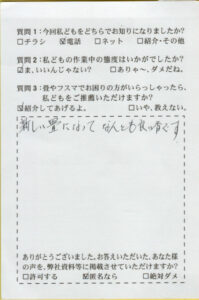 質問1:今回私どもをどちらでお知りになりましたか?
□チラシ ☑電話 □ネット □紹介・その他
質問2:私どもの作業中の態度はいかがでしたか?
☑ま、いいんじゃない? □ありゃ~、ダメだね。
質問3:畳やフスマでお困りの方がいらっしゃったら、
私どもをご推薦いただけますか?
☑紹介してあげるよ。 □いや、教えない。
新しい畳になって なんとも良い
ありがとうございました。お答えいただいた、あなた様
の声を、弊社資料等に掲載させていただけますか?
□許可する ☑匿名なら □絶対ダメ